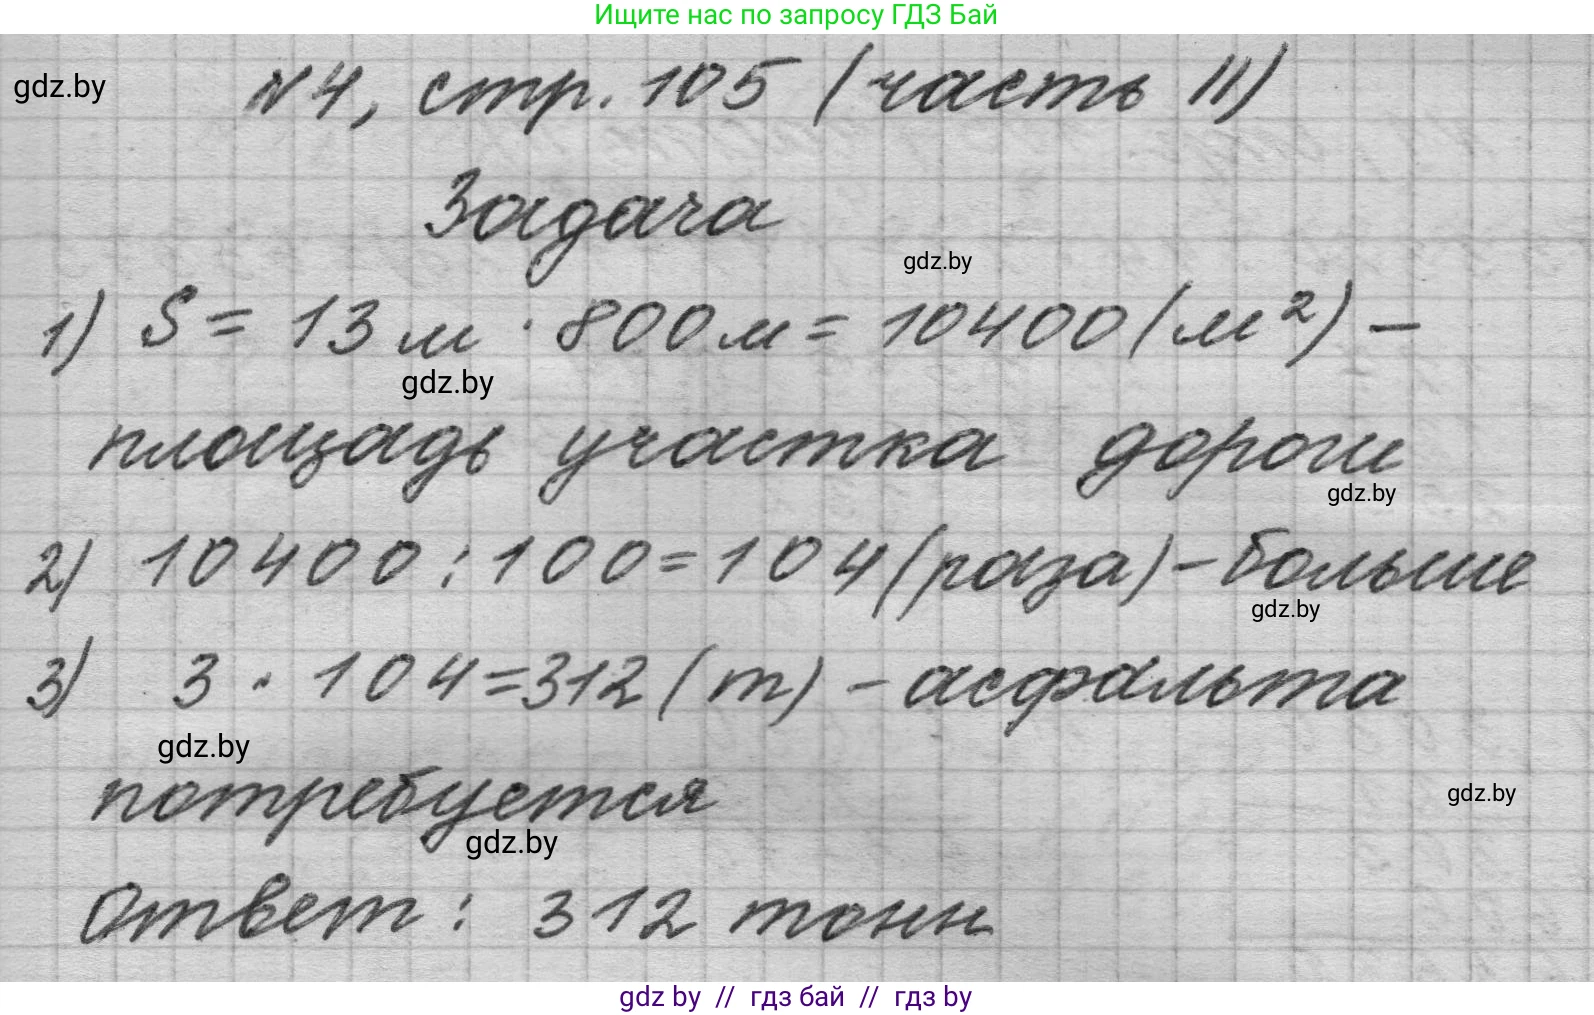 Ищите нас по запросу ГДЗ Бай
gdz.by
№4, стр. 105 (часть II)
Задача
gdz.by
1) S = 13 м · 800 м = 10400 (м²) –
gdz.by
площадь участка дороги
gdz.by
2) 10400 : 100 = 104 (раза) – больше
gdz.by
3) 3 · 104 = 312 (т) – асфальта
gdz.by
потребуется
gdz.by
gdz.by
Ответ: 312 тонн
gdz by // гдз бай // гдз by